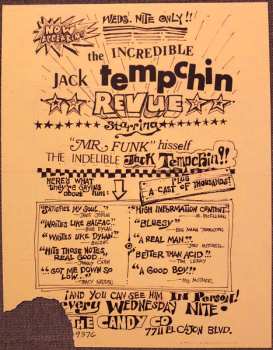 WEDS. NITE ONLY!!
NOW APPEARING
the INCREDIBLE
Jack tempchin
REVUE
starring
"MR. FUNK" hisself
THE INDELIBLE Jack Tempchin!!
HERE'S WHAT they're SAYING about him!
A CAST of THOUSANDS!
"SATISFIES MY SOUL..."
"WRITES LIKE BALZAC"
BOB DYLAN
"WRITES LIKE DYLAN"
BALZAC
"HITS THOSE NOTES, REAL GOOD."
JOHNNY CASH
"GOT ME DOWN SO LOW..."
"HIGH INFORMATION CONTENT"
M. McLUHAN
"BLUESY"
BIG MAMA THORNTON
"A REAL MAN"...
JONI MITCHELL
"BETTER THAN ACID!!"
TIM LEARY
"A GOOD BOY!!"
HIS MOTHER
¡AND YOU CAN SEE HIM IN Person!
every WEDNESDAY NITE!
THE CANDY CO.
7711 EL CAJON BLVD.